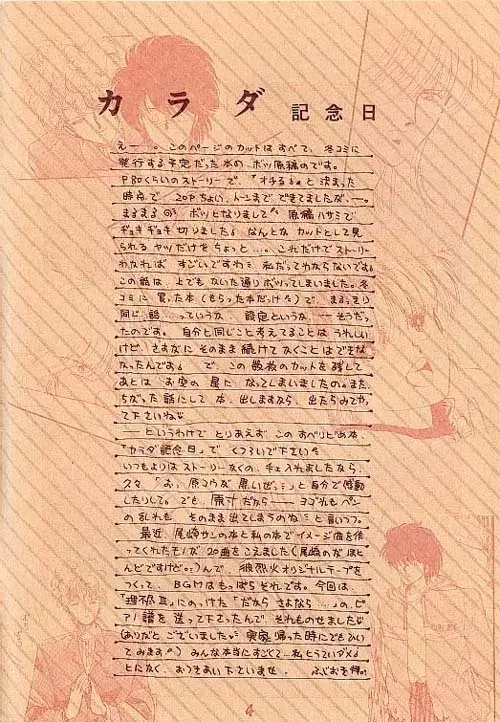 カラダ記念日
えー。このページのカットはすべて、冬コミに
発行する予定だった本の、ボツ原稿のです。
P80くらいのストーリーで、「オチる」と決まった
時点で 20Pちょい、トーンまでできてましたが、―。
まるまる ボツになりまして 原稿ハサミで
ギョキギョキ切りました。なんとなくカットとして見
られるヤツだけをちょっと…。これだけでストーリー
わかれば すごいですわ 私だってわからないです。
この話は、上でもかいた通りボツってしまいました。冬
コミに買った本(もらった本だっけ)で、まるっきり
同じ話…っていうか、設定というか ―そうだっ
たのです。自分と同じこと考えてることは うれしい
けど、さすがに そのまま続けてかくことはできな
かったんです。で、この数枚のカットを残して
あとは お空の星に なってしまいましたの。また、
ちがった話にして 本、出しますなら、出たらみてやっ
て下さいね
―というわけで とりあえず このすべりどめ本、
「カラダ記念日」で くつろいで下さい
いつもよりはストーリーなくの、チェ入れましたなら、
久々「おっ、原コウが 黒いぜ。」と自分で感動
したりして。でも 原寸だから――ヨゴれもペン
の乱れも そのまま出てしまうのね と言いつつ。
最近、尾崎サンの本と私の本でイメージ曲を作
ってくれたモノが 20曲をこえました(尾崎のが ほと
んどですけど)んで、 オリジナルテープを
つくって、BGMはもっぱらそれです。今回は、
につけた「だから さよなら…」の、ピ
アノ譜を送って下さったんで、それものせました
(ありがとございました 実家帰った時にでもひい
てみます)みんな本当にすごくて…私
とにかく、おつきあい下さいませ。
4